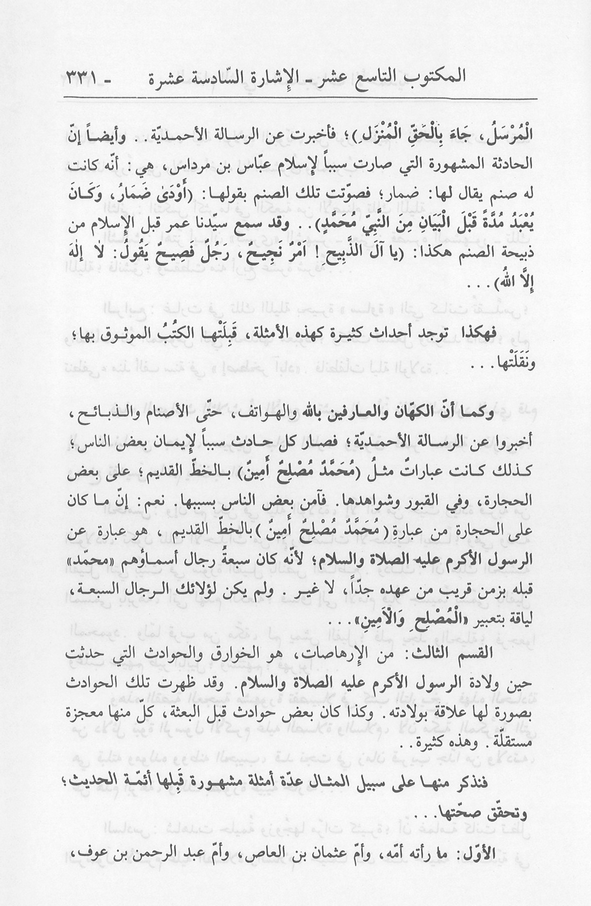 المكتوب التاسع عشر ـ الإشارة السّادسة عشرة ـ ٣٣١
الْمُرْسَلُ، جَاءَ بِالْحَقِّ الْمُنْزَلِ)؛ فأخبرت عن الرسالة الأحمديّة.. وأيضاً إنّ
الحادثة المشهورة التي صارت سبباً لإسلام عبّاس بن مرداس، هي: أنّه كانت
له صنم يقال لها: ضمار؛ فصوّتت تلك الصنم بقولها: (أَوْدَى ضَمَارُ، وَكَانَ
يُعْبَدُ مُدَّةً قَبْلَ الْبَيَانِ مِنَ النَّبِيِّ مُحَمَّدٍ).. وقد سمع سيّدنا عمر قبل الإسلام من
ذبيحة الصنم هكذا: (يا آلَ الذَّبِيحِ! اَمْرٌ نَجِيحٌ، رَجُلٌ فَصِيحٌ يَقُولُ: لاَ إلٰهَ
إِلَّا اللهُ)...
فهكذا توجد أحداث كثيرة كهذه الأمثلة، قَبِلَتْها الكتُبُ الموثوق بها؛
ونَقَلَتْها...
وكما أنّ الكهّان والعارفين بالله والهواتف، حتّى الأصنام والذبائح،
أخبروا عن الرسالة الأحمديّة؛ فصار كل حادث سبباً لإيمان بعض الناس؛
كذلك كانت عبارات مثلُ (مُحَمَّدٌ مُصْلِحٌ أَمِينٌ) بالخطّ القديم؛ على بعض
الحجارة، وفي القبور وشواهدها. فآمن بعض الناس بسببها. نعم: إنّ ما كان
على الحجارة من عبارةِ (مُحَمَّدٌ مُصْلِحٌ أَمِينٌ) بالخطّ القديم، هو عبارة عن
الرسول الأكرم عليه الصلاة والسلام؛ لأنّه كان سبعةُ رجال أسماؤهم «محمّد»
قبله بزمن قريب من عهده جدّاً، لا غير. ولم يكن لأولائك الرجال السبعة،
لياقة بتعبير «الْمُصْلِحِ وَالْاَمِينِ»...
القسم الثالث: من الإرهاصات، هو الخوارق والحوادث التي حدثت
حين ولادة الرسول الأكرم عليه الصلاة والسلام. وقد ظهرت تلك الحوادث
بصورة لها علاقة بولادته. وكذا كان بعض حوادث قبل البعثة، كلّ منها معجزة
مستقلّة. وهذه كثيرة..
فنذكر منها على سبيل المثال عدّة أمثلة مشهورة قَبِلها أئمّة الحديث؛
وتحقّق صحّتها...
الأوّل: ما رأته أمّه، وأمّ عثمان بن العاص، وأمّ عبد الرحمن بن عوف،